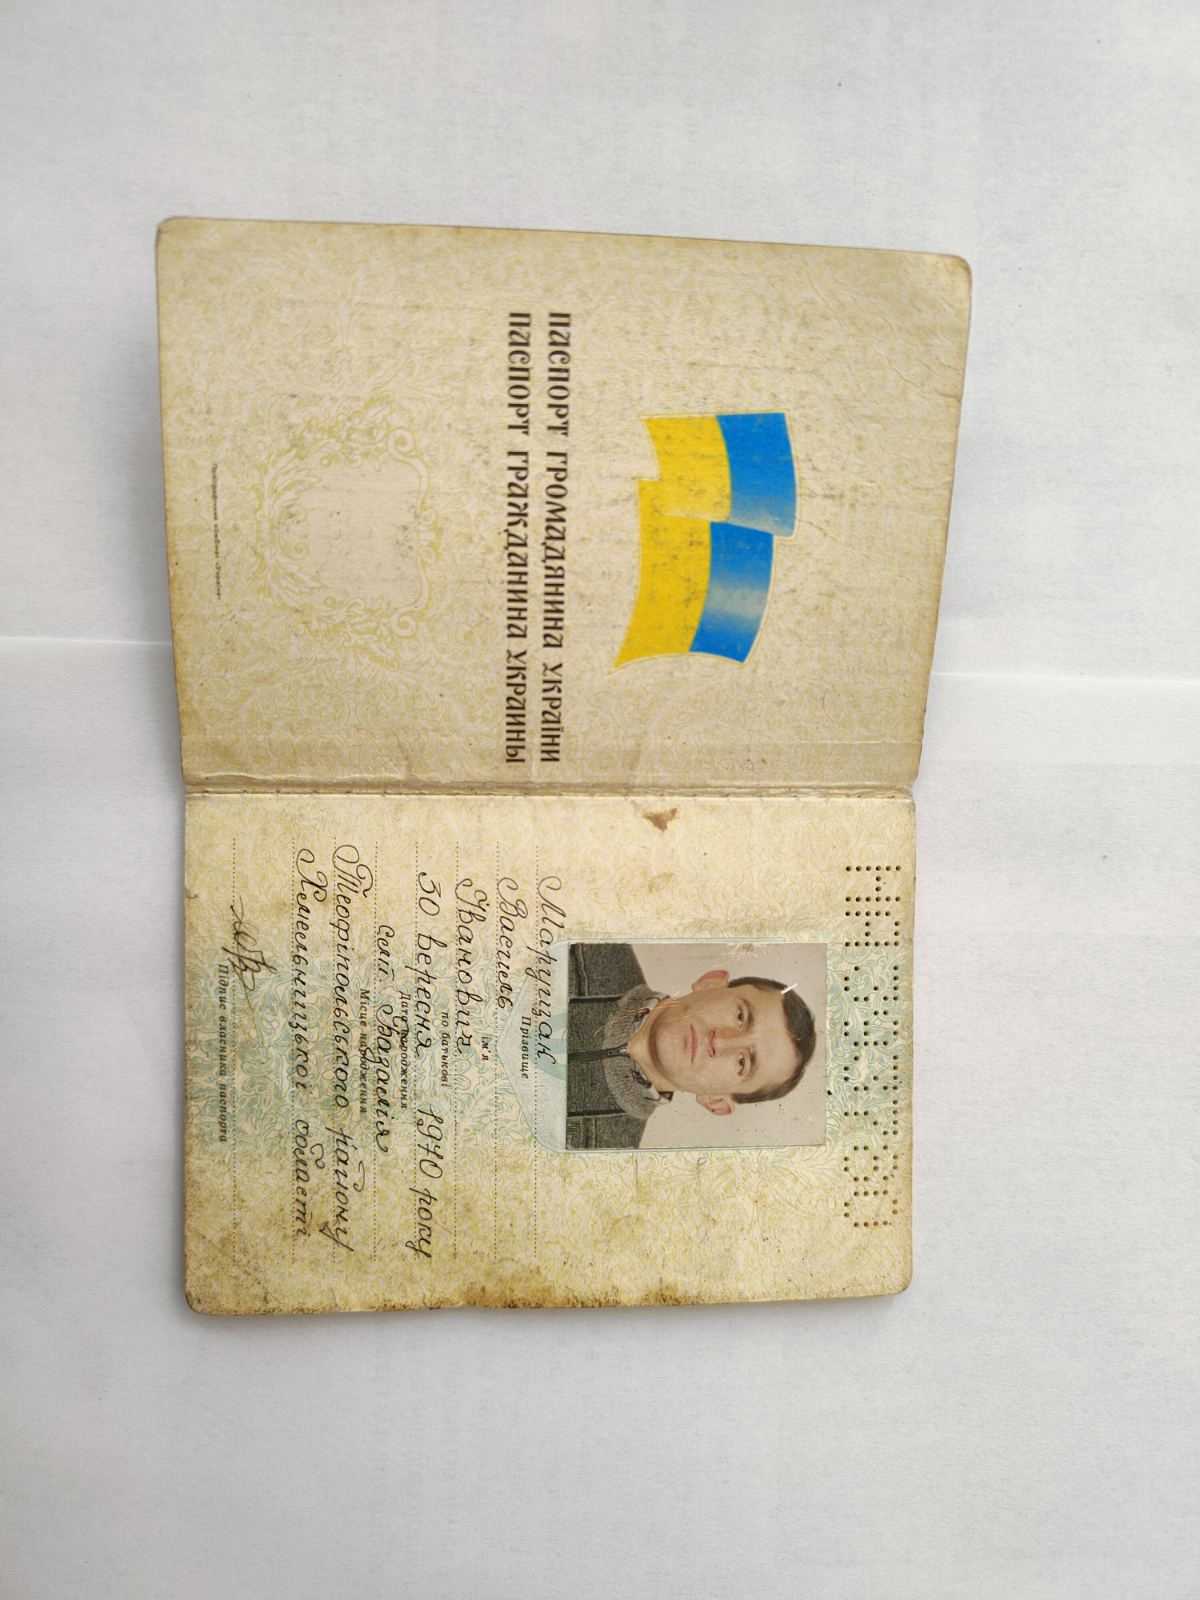 ПАСПОРТ ГРОМАДЯНИНА УКРАЇНИ
ПАСПОРТ ГРАЖДАНИНА УКРАИНЫ
Марущак
Прізвище
Василь
Ім'я
Іванович
по батькові
30 вересня 1970 року
Дата народження
село Базалія
Місце народження
Теофіпольського району
Хмельницької області
Підпис власника паспорта